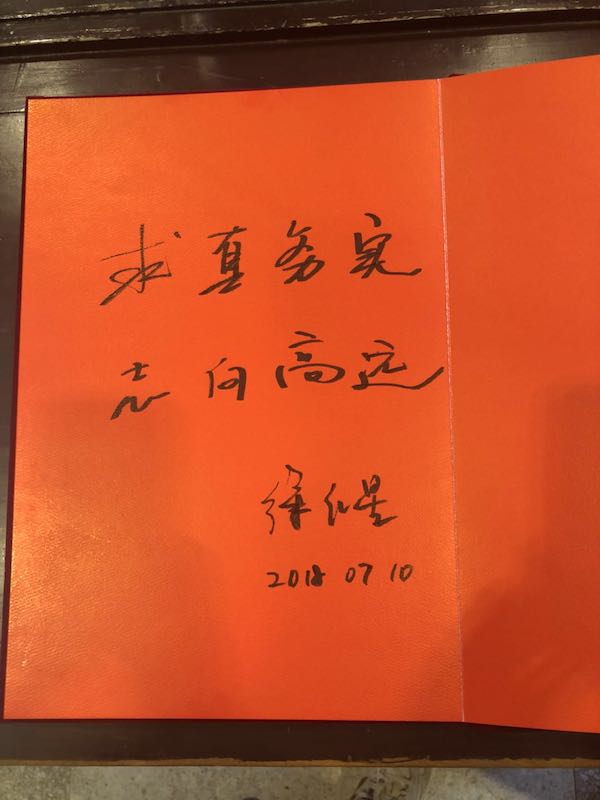 求真务实
志向高远
徐红星
2018 07 10